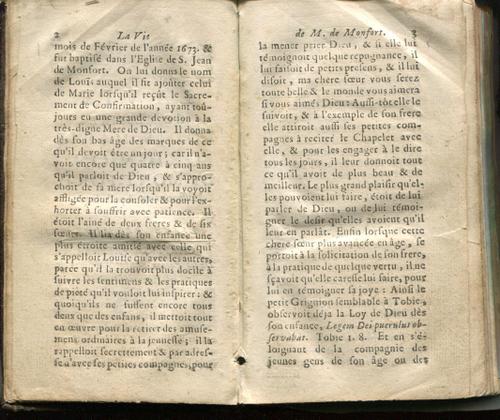 2 La Vie
mois de Février de l'année 1673. &
fut baptisé dans l'Eglise de S. Jean
de Monfort. On lui donna le nom
de Louis auquel il fit ajoûter celui
de Marie lorsqu'il reçut le Sacre-
ment de Confirmation, ayant toû-
jours eu une grande devotion à la
très-digne Mere de Dieu. Il donna
dès son bas âge des marques de ce
qu'il devoit être un jour; car il n'a-
voit encore que quatre à cinq ans
qu'il parloit de Dieu, & s'appro-
choit de sa mere lorsqu'il la voyoit
affligée pour la consoler & pour l'ex-
horter à souffrir avec patience. Il
étoit l'aîné de deux freres & de six
sœurs. Il lia dès son enfance une
plus étroite amitié avec celle qui
s'appelloit Louise qu'avec les autres,
parce qu'il la trouvoit plus docile à
suivre les sentimens & les pratiques
de pieté qu'il vouloit lui inspirer: &
quoiqu'ils ne fussent encore tous
deux que des enfans, il mettoit tout
en œuvre pour la retirer des amuse-
mens ordinaires à la jeunesse; il la
rappelloit secrettement & par adres-
se d'avec ses petites compagnes, pour
de M. de Monfort. 3
la mener prier Dieu, & si elle lui
témoignoit quelque repugnance, il
lui faisoit de petits presens, & il lui
disoit, ma chere sœur vous serez
toute belle & le monde vous aimera
si vous aimés Dieu: Aussi-tôt elle le
suivoit, & à l'exemple de son frere
elle attiroit aussi ses petites com-
pagnes à reciter le Chapelet avec
elle, & pour les engager à le dire
tous les jours, il leur donnoit tout
ce qu'il avoit de plus beau & de
meilleur. Le plus grand plaisir qu'el-
les pouvoient lui faire, étoit de lui
parler de Dieu, ou de lui témoi-
gner le desir qu'elles avoient qu'il
leur en parlât. Enfin lorsque cette
chere sœur plus avancée en âge, se
portoit à la solicitation de son frere,
à la pratique de quelque vertu, il ne
sçavoit qu'elle caresse lui faire, pour
lui en témoigner sa joye: Ainsi le
petit Grignion semblable à Tobie,
observoit déja la Loy de Dieu dès
son enfance, Legem Dei puerulus ob-
servabat. Tobie 1. 8. Et en s'é-
loignant de la compagnie des
jeunes gens de son âge ou des